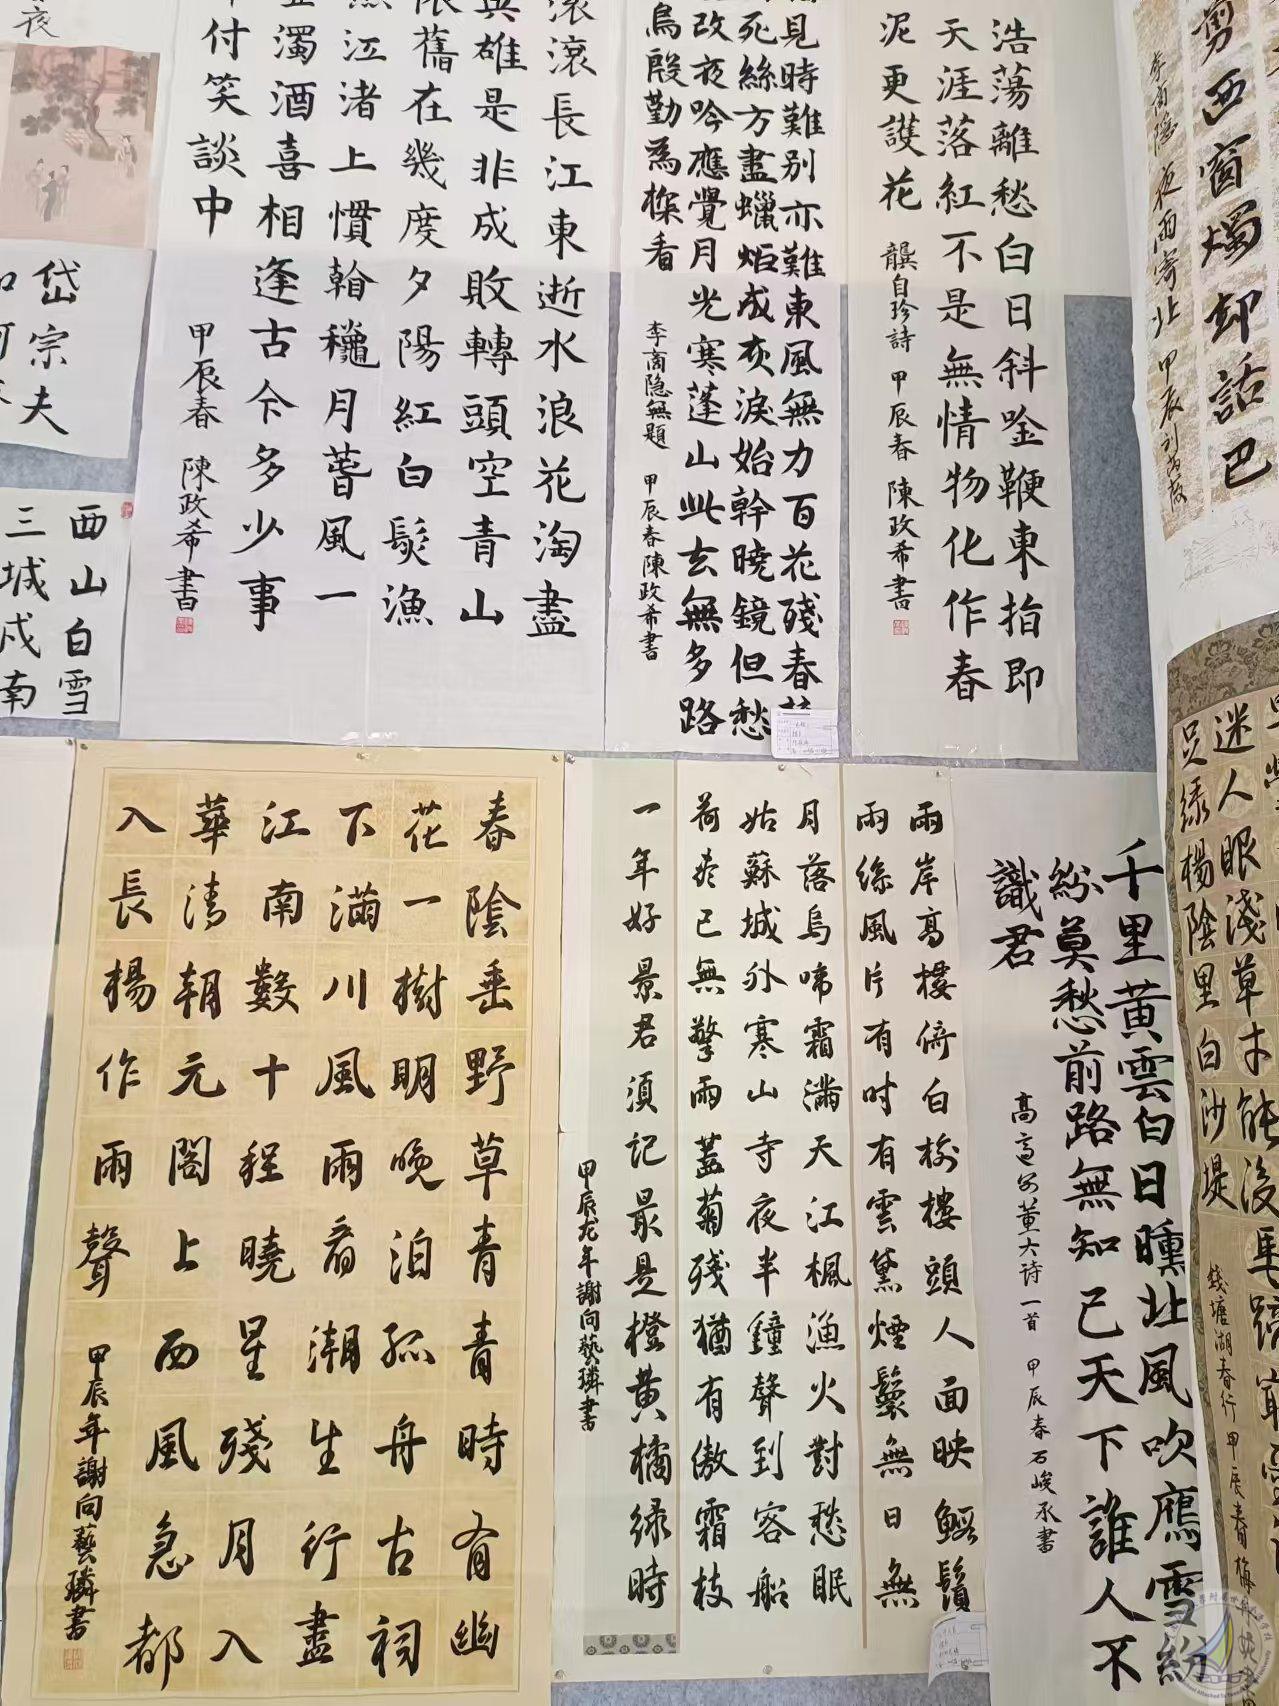 浩蕩離愁白日斜唫鞭東指即
天涯落紅不是無情物化作春
泥更護花
龔自珍詩 甲辰春 陳政希書
見時難别亦難東風無力百花殘春
死絲方盡蠟炬成灰淚始幹曉鏡但愁
改夜吟應覺月光寒蓬山此去無多路
鳥殷勤為探看
李商隐無題 甲辰春陳政希書
滾滾長江東逝水浪花淘盡
雄是非成敗轉頭空青山
舊在幾度夕陽紅白髮漁
江渚上慣看龝月春風一
濁酒喜相逢古今多少事
付笑談中
甲辰春 陳政希書
剪西窗燭却話巴
李商隐 夜雨寄北 甲辰
岱宗夫
西山白雪
三城戍南
千里黃雲白日曛北風吹鴈雪紛
紛莫愁前路無知己天下誰人不
識君
高適别董大诗一首 甲辰春石峻丞書
兩岸高樓倚白榆樓頭人面映鰕鬚
雨絲風片有时有雲黛煙鬟無日無
月落烏啼霜滿天江楓漁火對愁眠
姑蘇城外寒山寺夜半鐘聲到客船
荷盡已無擎雨蓋菊殘猶有傲霜枝
一年好景君須記最是橙黄橘绿時
甲辰龙年謝向藝璘書
春陰垂野草青青時有幽
花一樹明晚泊孤舟古祠
下滿川風雨看潮生行盡
江南數十程曉星殘月入
華清朝元閣上西風急都
入長楊作雨聲
甲辰年謝向藝璘書
迷人眼淺草才能没馬蹄
足绿楊陰里白沙堤
錢塘湖春行 甲辰春梅